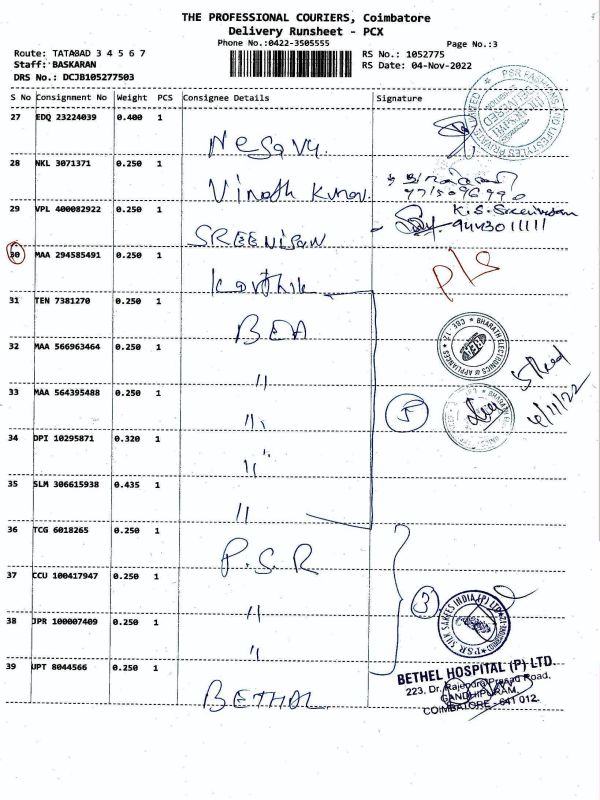 THE PROFESSIONAL COURIERS, Coimbatore
Delivery Runsheet - PCX
Phone No.:0422-3505555
Page No.:3
Route: TATABAD 3 4 5 6 7
Staff: BASKARAN
DRS No.: DCJB105277503
RS No.: 1052775
RS Date: 04-Nov-2022
S No Consignment No Weight PCS Consignee Details Signature
27 EDQ 23224039 0.400 1
Nesavu.
28 NKL 3071371 0.250 1
Vinoth Kumar.
29 VPL 400082922 0.250 1
K.S. Sreenivasan
9443011111
SREENISAN
30 MAA 294585491 0.250 1
Karthik
P/S
31 TEN 7381270 0.250 1
BEA
BHARATH ELECTRONICS & APPLIANCES * CBE-12 *
32 MAA 566963464 0.250 1
"
33 MAA 564395488 0.250 1
"
5
34 DPI 10295871 0.320 1
"
35 SLM 306615938 0.435 1
"
36 TCG 6018265 0.250 1
P.S.R
37 CCU 100417947 0.250 1
"
3
PSR SILK SAREES INDIA (P) LTD
38 JPR 100007409 0.250 1
"
39 UPT 8044566 0.250 1
BETHAL
BETHEL HOSPITAL (P) LTD.
223, Dr. Rajendra Prasad Road,
GANDHIPURAM,
COIMBATORE - 641 012.